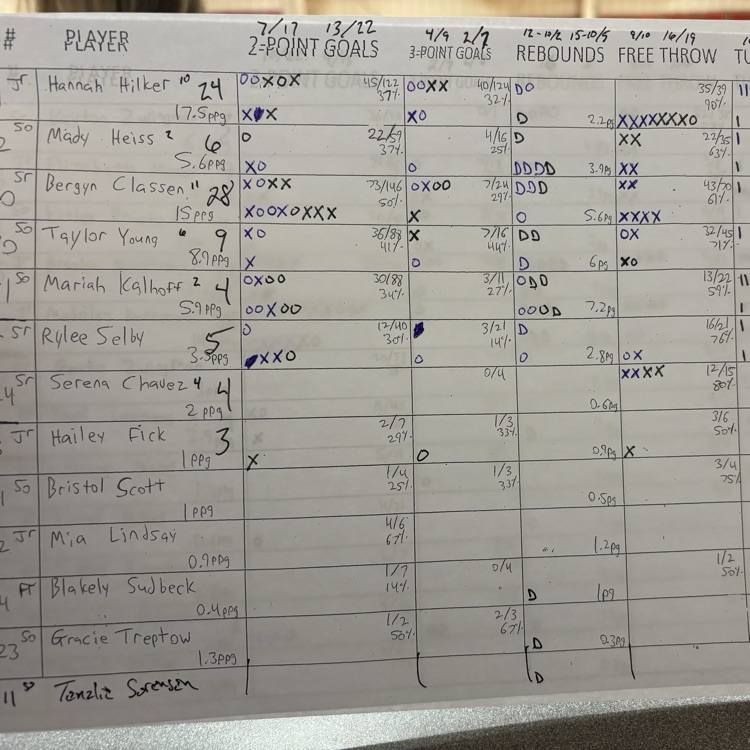 7/17 13/22 4/9 2/7 12-10/2 15-10/5 9/10 16/19
# PLAYER 2-POINT GOALS 3-POINT GOALS REBOUNDS FREE THROW TU
Jr Hannah Hilker 10 24 OOXOX 45/122 OOXX 40/124 DO 35/39
37% 32% 90%
17.5ppg XX XO D 2.2pg XXXXXXXO
So Mady Heiss 2 6 O 22/59 4/16 D XX 22/35
37% 25% 63%
5.6ppg XO O DDDD 3.9pg XX
Sr Bergyn Classen 11 28 XOXX 73/146 OXOO 7/24 DDD XX 43/70
50% 29% 61%
15ppg XOOXOXXX X O 5.6pg XXXX
So Taylor Young 6 9 XO 36/88 X 7/16 DD OX 32/45
41% 44% 71%
8.9ppg X O D 6pg XO
So Mariah Kalhoff 2 4 OXOO 30/88 3/11 ODD 13/22
34% 27% 59%
5.9ppg OOXOO OOOD 7.2pg
Sr Rylee Selby 5 O 12/40 3/21 D 16/21
30% 14% 76%
XXO O O 2.8pg OX
Sr Serena Chavez 4 4 0/4 XXXX 12/15
80%
2ppg 0.6pg
Jr Hailey Fick 3 2/7 1/3 3/6
29% 33% 50%
1ppg X O 0.9pg X
So Bristol Scott 1/4 1/3 3/4
25% 33% 75%
1ppg 0.5pg
Jr Mia Lindsay 4/6
67%
0.9ppg 1.2pg
Fr Blakely Sudbeck 1/7 0/4 1/2
14% 50%
0.4ppg D 1pg
23 So Gracie Treptow 1/2 2/3
50% 67%
1.3ppg D 0.3pg
11 So Tenzlie Sorensen D